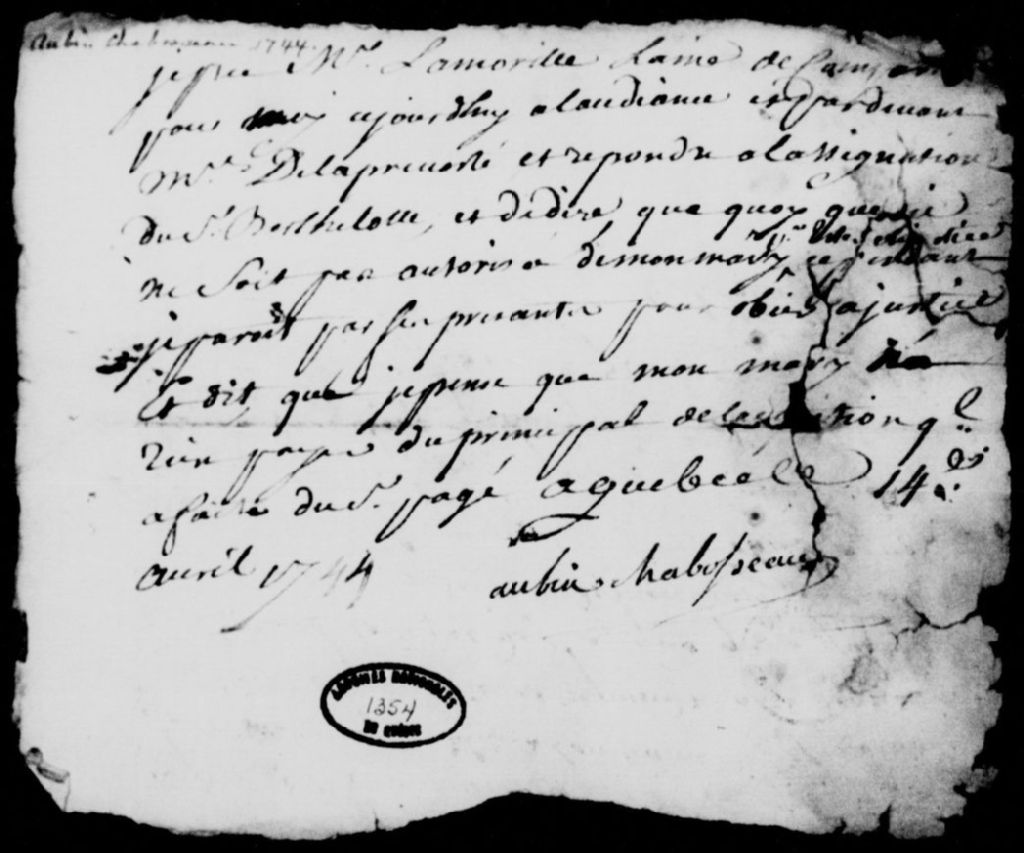 aubin 1744
je prie Mr. Lamorille Laine de
pour moy ajourdhuy a laudiance et pardevant
Mr. Delaprevosté et repondre a lassignation
du Sr. Berthelotte, et de dire que quoy que je
ne soit pas autorisé de mon mary ce pendant
je parois par les presante pour obeir a justice
Et dit que je pense que mon mary na
rien payé du principal de laquisition ql.
a faite du Sr. pagé a quebec le 14e.
avril 1744
aubin chabosseau
ARCHIVES NATIONALES
1354
DU QUÉBEC